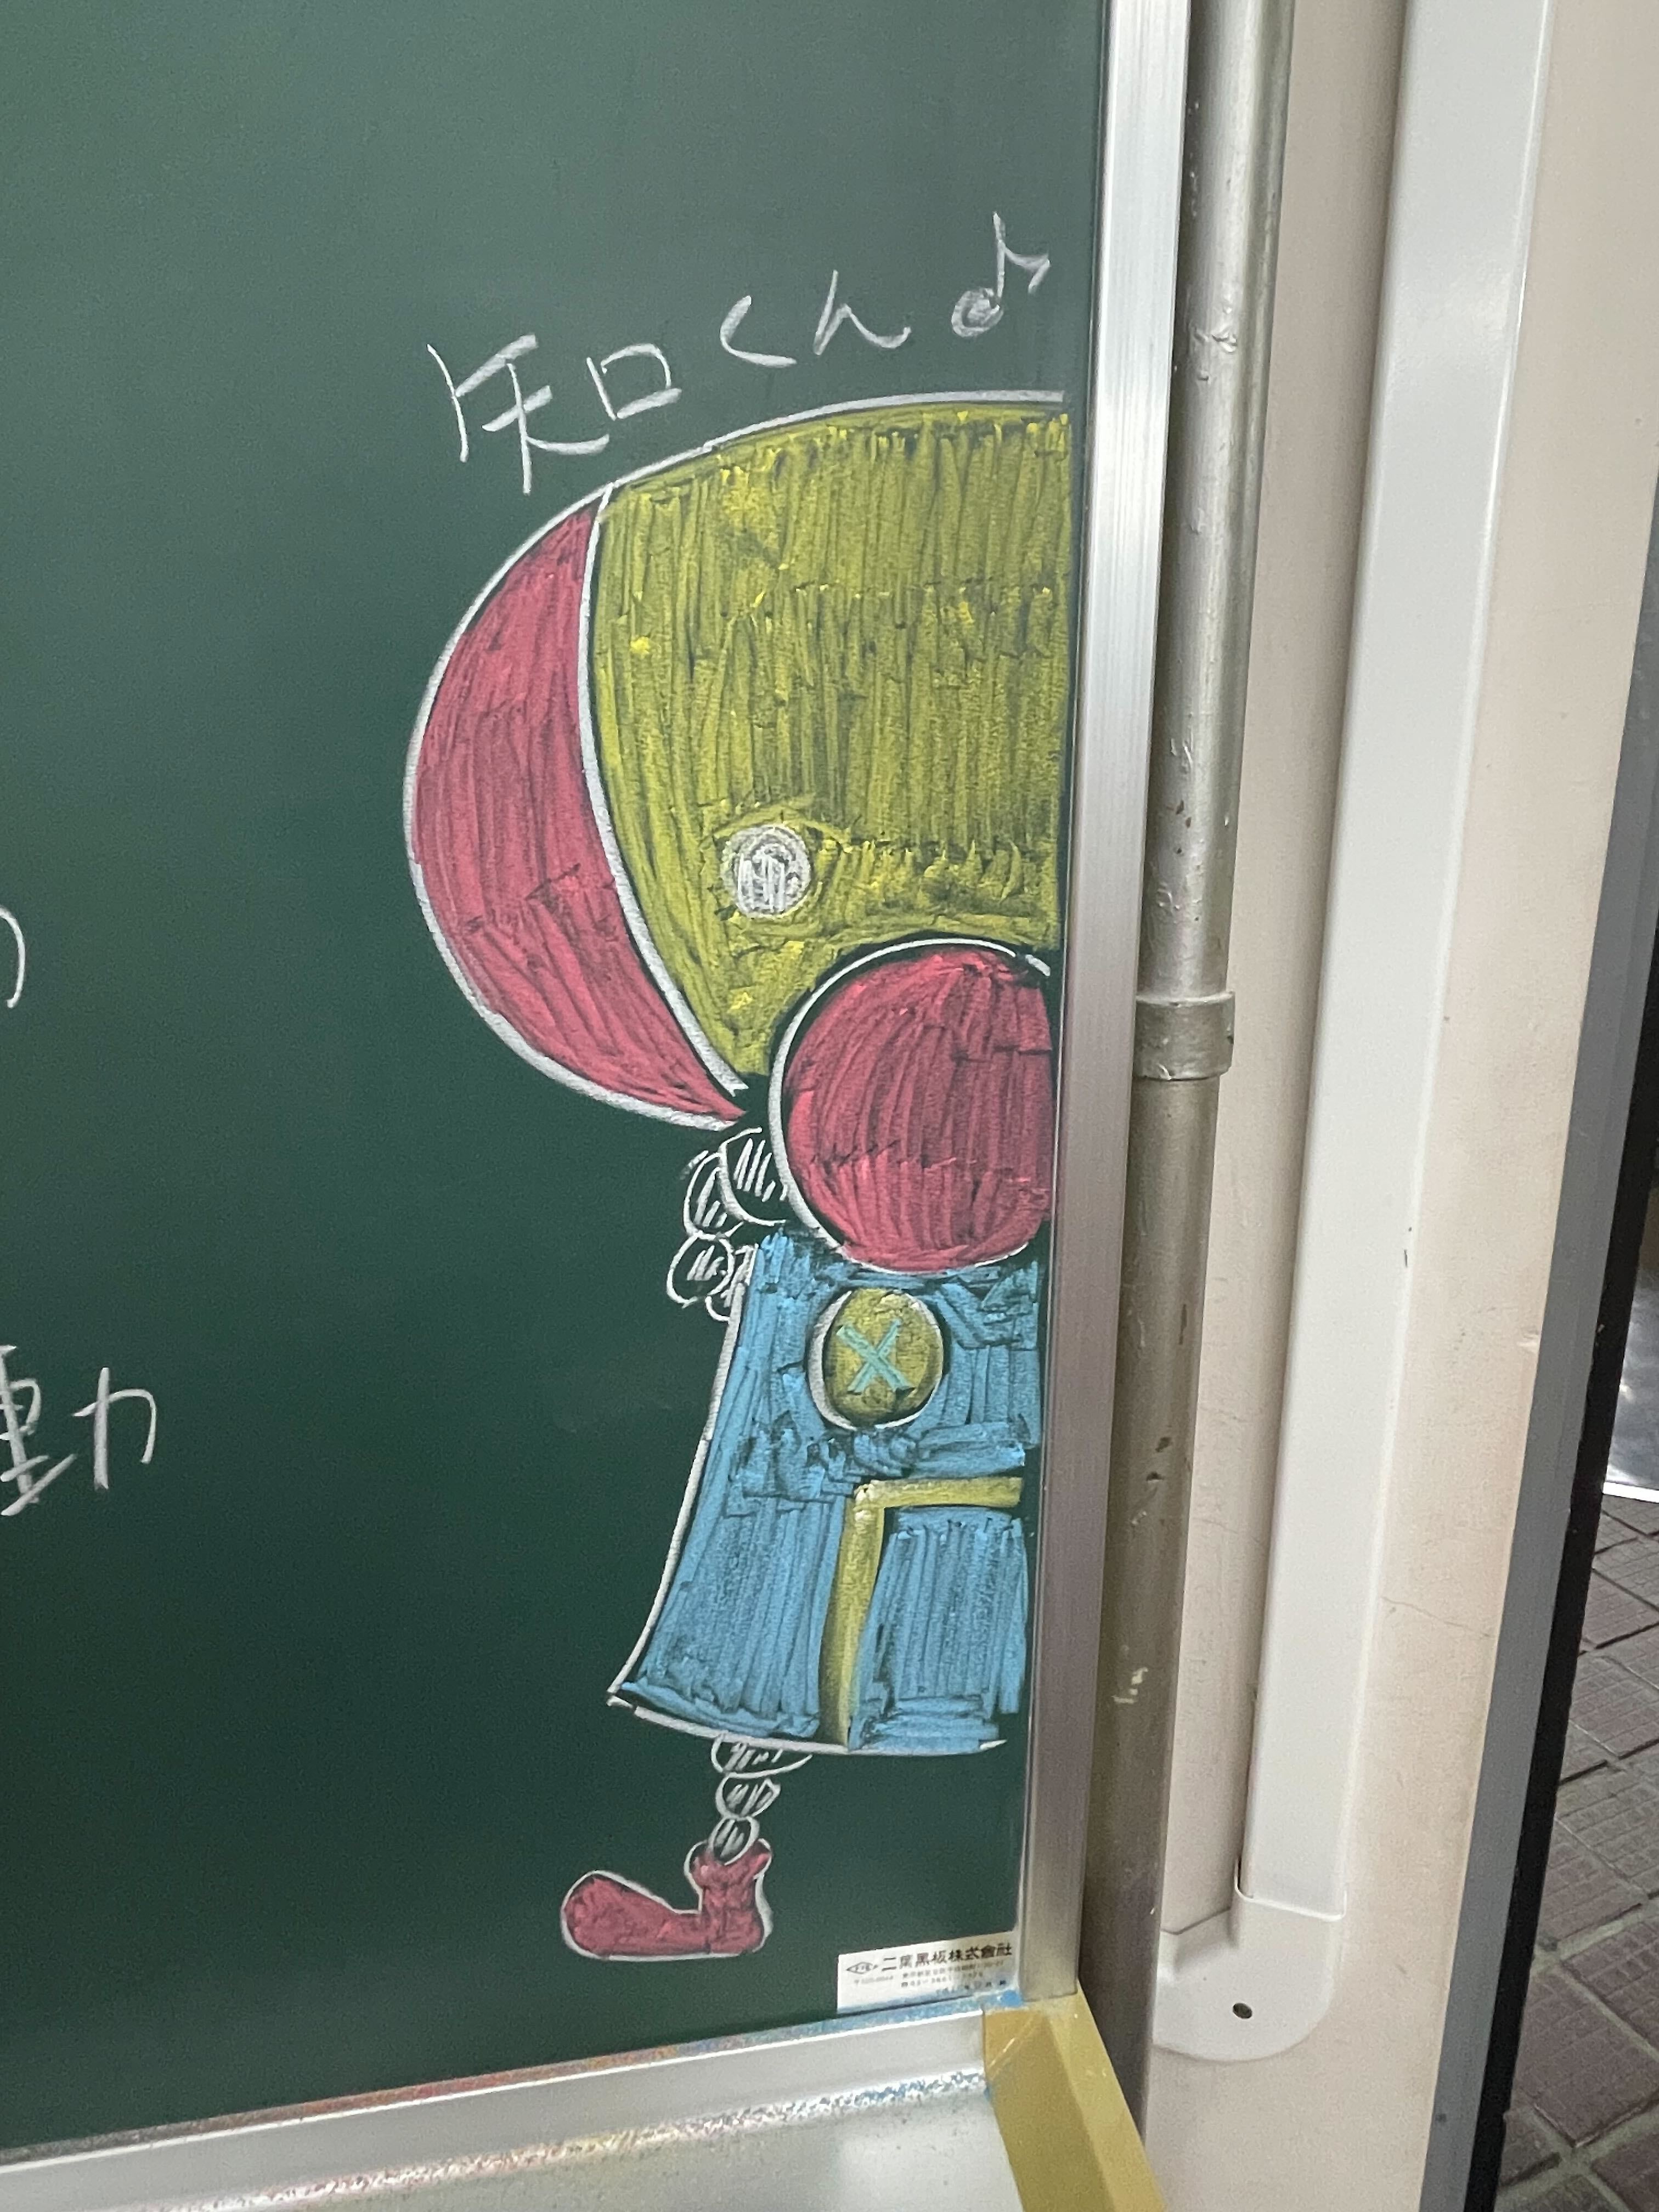 矢口くん♪
動
二葉黒板株式會社